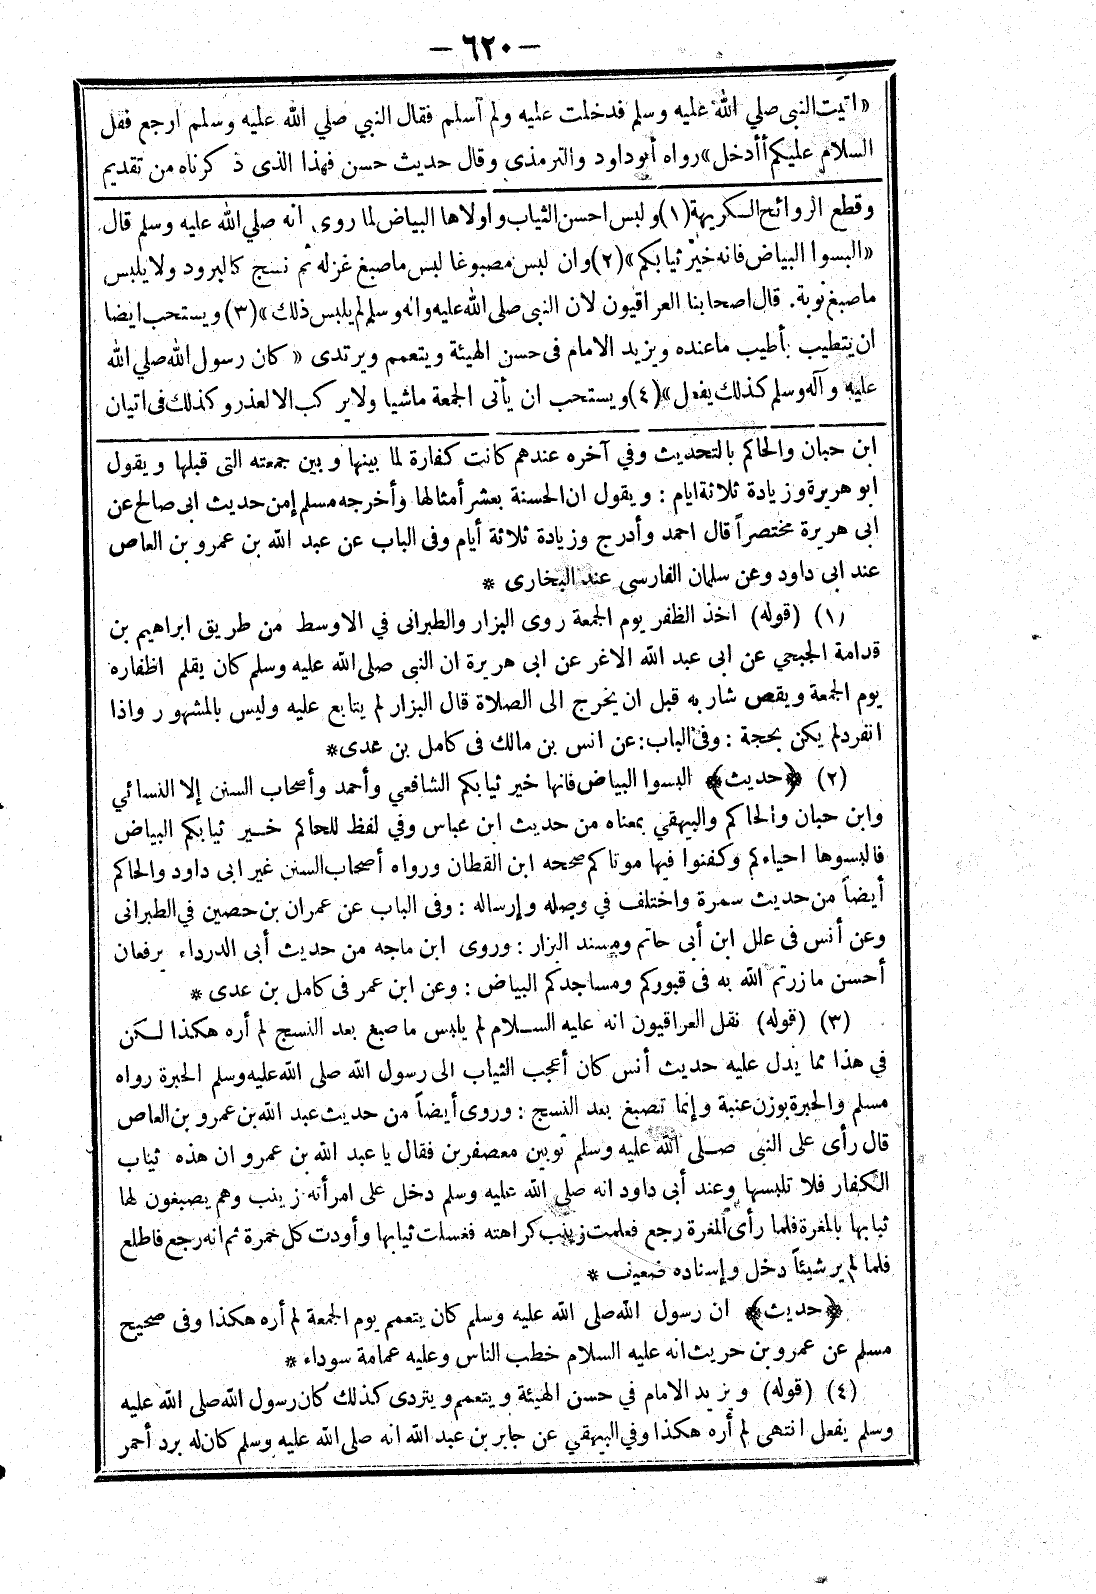 — ٦٢٠ —
«اتيت النبي صلي الله عليه وسلم فدخلت عليه ولم أسلم فقال النبي صلي الله عليه وسلم ارجع فقل
السلام عليكم أأدخل» رواه أبو داود والترمذى وقال حديث حسن فهذا الذى ذكرناه من تقديم
وقطع الروائح الكريهة (١) ولبس احسن الثياب واولاها البياض لما روى انه صلي الله عليه وسلم قال
«البسوا البياض فانه خير ثيابكم» (٢) وان لبس مصبوغا لبس ماصبغ غزله ثم نسج كالبرود ولا يلبس
ماصبغ ثوبة. قال اصحابنا العراقيون لان النبى صلى الله عليه وآله وسلم لم يلبس ذلك» (٣) ويستحب ايضا
ان يتطيب بأطيب ماعنده ويزيد الامام فى حسن الهيئة ويتعمم ويرتدى «كان رسول الله صلي الله
عليه وآله وسلم كذلك يفعل» (٤) ويستحب ان يأتى الجمعة ماشيا ولا يركب الا لعذر وكذلك فى اتيان
ابن حبان والحاكم بالتحديث وفي آخره عندهم كانت كفارة لما بينها وبين جمعته التى قبلها ويقول
ابو هريرة وزيادة ثلاثة ايام : ويقول ان الحسنة بعشر أمثالها وأخرجه مسلم من حديث ابى صالح عن
ابى هريرة مختصراً قال احمد وأدرج وزيادة ثلاثة أيام وفى الباب عن عبد الله بن عمرو بن العاص
عند ابى داود وعن سلمان الفارسى عند البخارى *
(١) (قوله) اخذ الظفر يوم الجمعة روى البزار والطبرانى في الاوسط من طريق ابراهيم بن
قدامة الجمحي عن ابى عبد الله الاغر عن ابى هريرة ان النبى صلى الله عليه وسلم كان يقلم اظفاره
يوم الجمعة ويقص شاربه قبل ان يخرج الى الصلاة قال البزار لم يتابع عليه وليس بالمشهور واذا
انفرد لم يكن بحجة : وفى الباب : عن انس بن مالك فى كامل بن عدى *
(٢) ﴿حديث﴾ البسوا البياض فانها خير ثيابكم الشافعي وأحمد وأصحاب السنن إلا النسائي
وابن حبان والحاكم والبيهقي بمعناه من حديث ابن عباس وفي لفظ للحاكم خير ثيابكم البياض
فالبسوها احياءكم وكفنوا فيها موتاكم صححه ابن القطان ورواه أصحاب السنن غير ابى داود والحاكم
أيضاً من حديث سمرة واختلف في وصله وإرساله : وفى الباب عن عمران بن حصين في الطبرانى
وعن أنس فى علل ابن أبى حاتم ومسند البزار : وروى ابن ماجه من حديث أبى الدرداء يرفعان
أحسن مازرتم الله به فى قبوركم ومساجدكم البياض : وعن ابن عمر فى كامل بن عدى *
(٣) (قوله) نقل العراقيون انه عليه السلام لم يلبس ماصبغ بعد النسج لم أره هكذا لكن
في هذا مما يدل عليه حديث أنس كان أعجب الثياب الى رسول الله صلى الله عليه وسلم الحبرة رواه
مسلم والحبرة بوزن عنبة وإنما تصبغ بعد النسج : وروى أيضاً من حديث عبد الله بن عمرو بن العاص
قال رأى على النبى صلى الله عليه وسلم ثوبين معصفرين فقال يا عبد الله بن عمرو ان هذه ثياب
الكفار فلا تلبسها وعند أبى داود انه صلى الله عليه وسلم دخل على امرأته زينب وهم يصبغون لها
ثيابها بالمغرة فلما رأى المغرة رجع فعلمت زينب كراهته فغسلت ثيابها وأودت كل خمرة ثم انه رجع فاطلع
فلما لم ير شيئاً دخل وإسناده ضعيف *
﴿حديث﴾ ان رسول الله صلى الله عليه وسلم كان يتعمم يوم الجمعة لم أره هكذا وفى صحيح
مسلم عن عمرو بن حريث انه عليه السلام خطب الناس وعليه عمامة سوداء *
(٤) (قوله) ويزيد الامام في حسن الهيئة ويتعمم ويتردى كذلك كان رسول الله صلى الله عليه
وسلم يفعل انتهى لم أره هكذا وفي البيهقي عن جابر بن عبد الله انه صلى الله عليه وسلم كان له برد أحمر